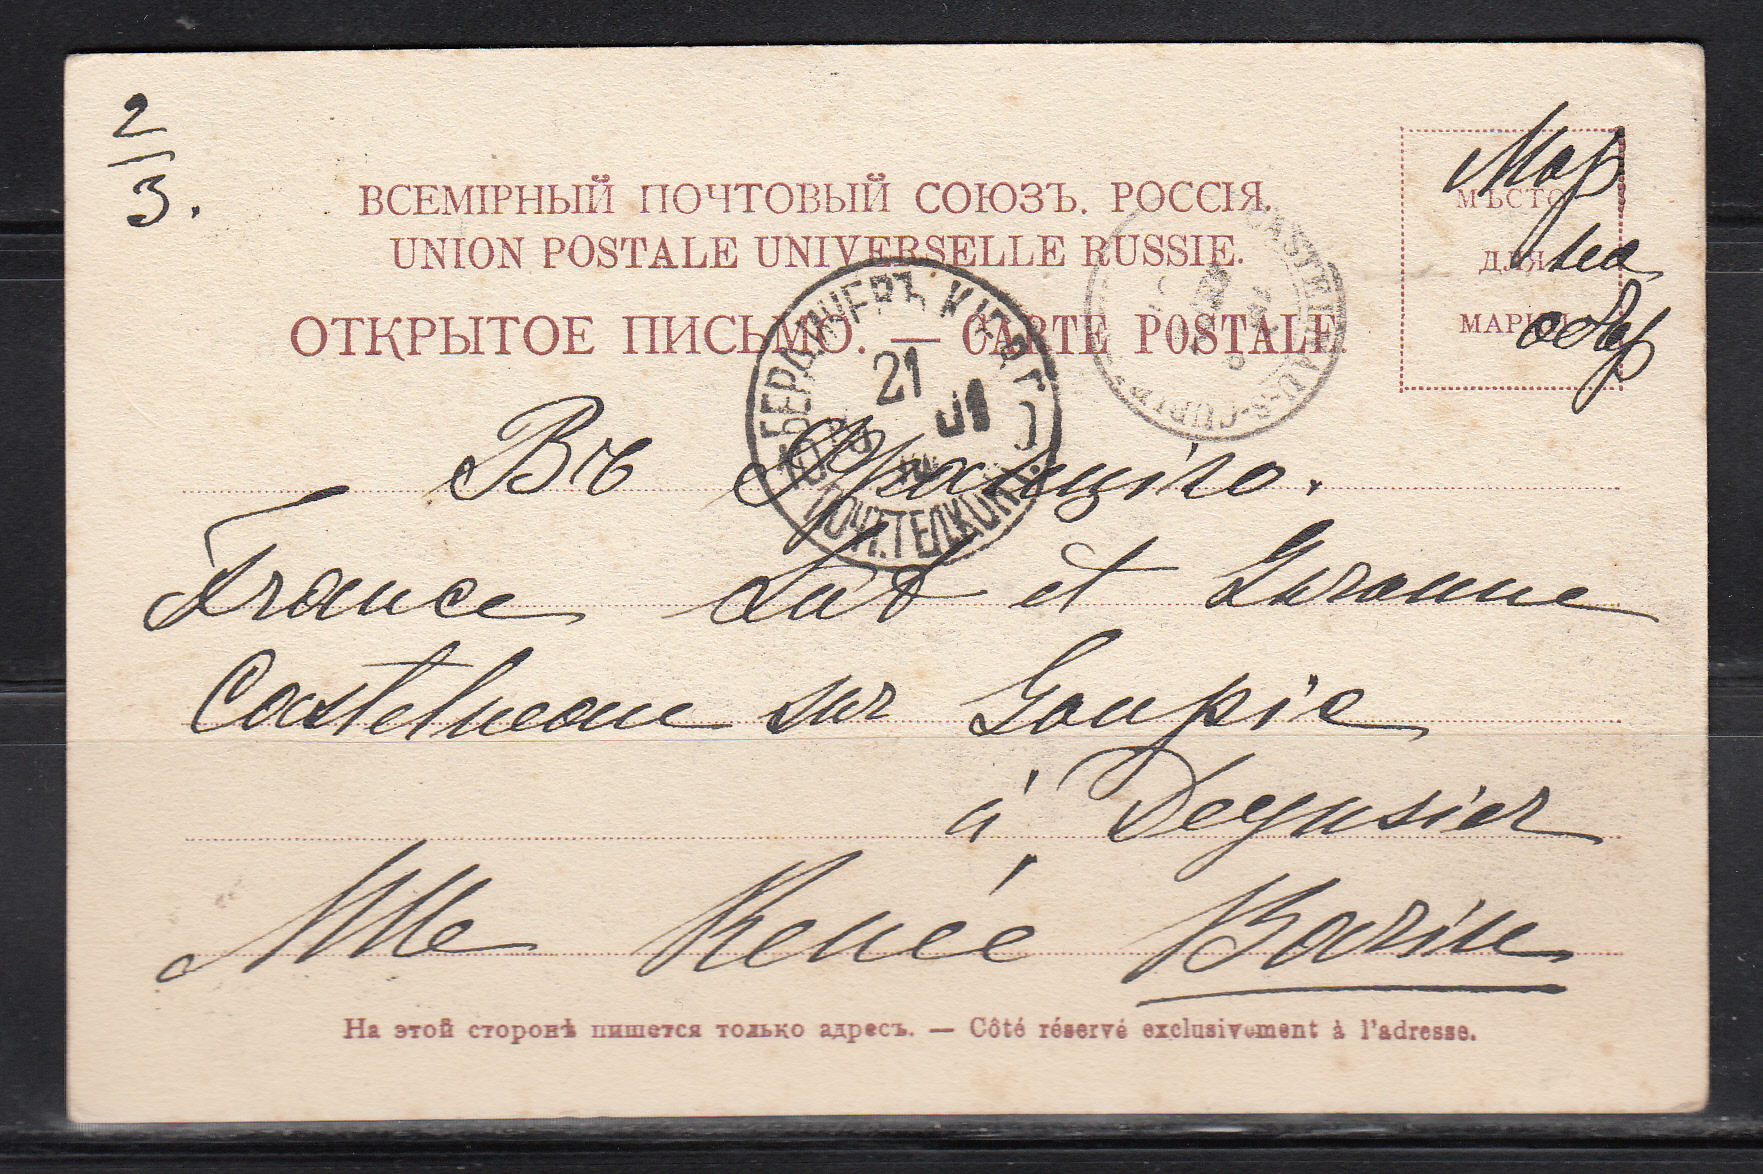 2/3.
Мар
на
обор
ВСЕМІРНЫЙ ПОЧТОВЫЙ СОЮЗЪ. РОССІЯ.
UNION POSTALE UNIVERSELLE RUSSIE.
ОТКРЫТОЕ ПИСЬМО. — CARTE POSTALE.
МѢСТО
ДЛЯ
МАРКИ
БЕРДИЧЕВЪ КІЕВ. Г.
21
ПОЧ.ТЕЛ.КОНТ.
CASTELNAU-S-GUPIE
Въ Францію.
France Lot et Garonne
Castelneau sur Goupie
à Degusier
Mlle Renée Barin
На этой сторонѣ пишется только адресъ. — Côté réservé exclusivement à l'adresse.